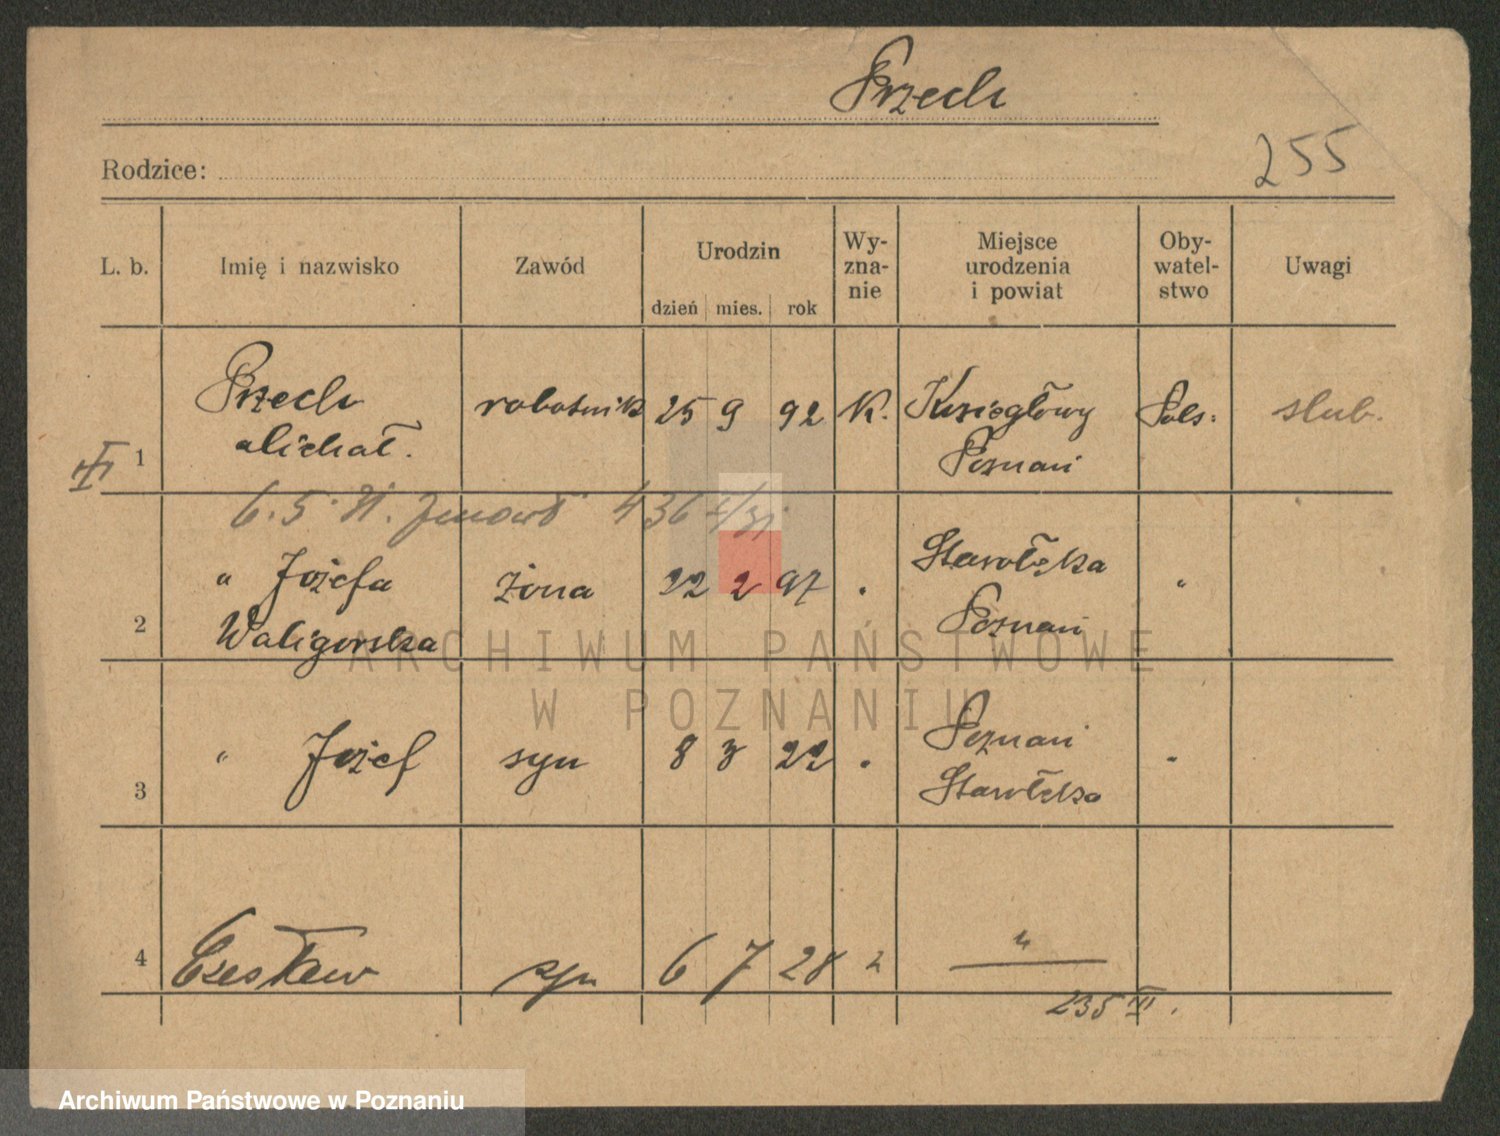 Przech
255
Rodzice:
L. b. Imię i nazwisko Zawód Urodzin Wy-zna-nie Miejsce urodzenia i powiat Oby-watel-stwo Uwagi
dzień mies. rok
Przech robotnik 25 9 92 K. Pols. slub.
1 Michał. Poznań
6. 5. 31. 436
" Józefa żona 22 2 97 " Starołęka "
2 Waligorska Poznań
" Józef syn 8 3 22 " Poznań "
3 Starołęka
4 Czesław syn 6 7 28 " "
235 III.
ARCHIWUM PAŃSTWOWE
W POZNANIU
Archiwum Państwowe w Poznaniu